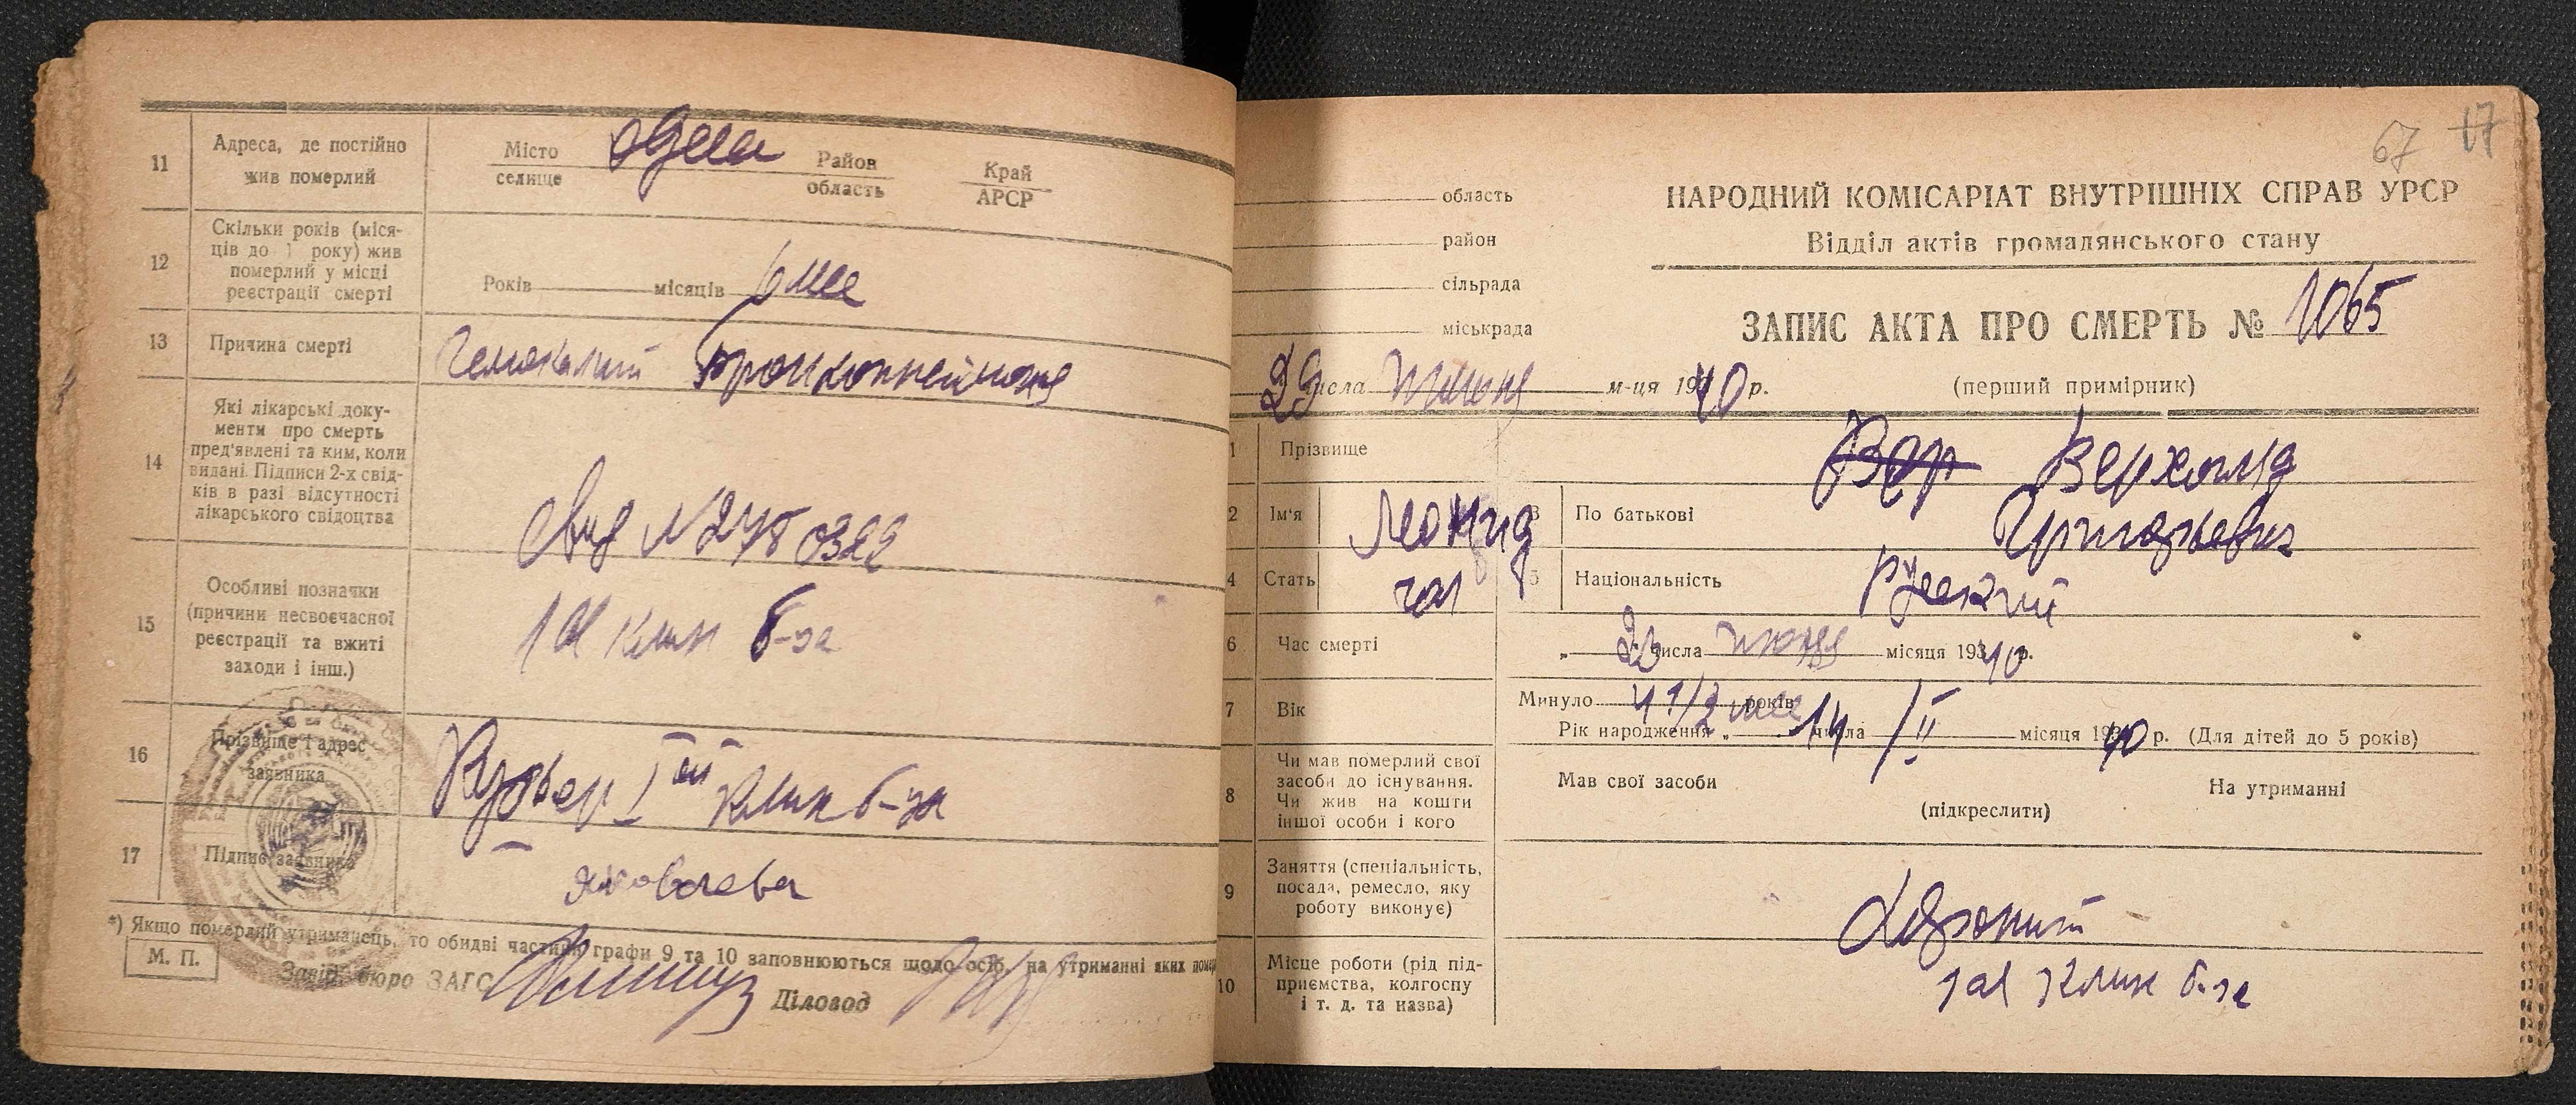 11
Адреса, де постійно
жив померлий
Місто
селище
Одесса
Район
область
Край
АРСР
12
Скільки років (міся-
ців до 1 року) жив
померлий у місці
реєстрації смерті
Років
місяців
13
Причина смерті
бронхопневмония
14
Які лікарські доку-
менти про смерть
пред'явлені та ким, коли
видані. Підписи 2-х свід-
ків в разі відсутності
лікарського свідоцтва
15
Особливі позначки
(причини несвоєчасної
реєстрації та вжиті
заходи і інш.)
клин б-ца
16
Прізвище і адрес
заявника
Курьер I ой клин б-ца
17
Підпис заявника
Яковлева
*) Якщо померлий утриманець, то обидві частини графи 9 та 10 заповнюються щодо осіб, на утриманні яких
М. П.
Завід. бюро ЗАГС
Діловод
67 17
область
район
сільрада
міськрада
НАРОДНИЙ КОМІСАРІАТ ВНУТРІШНІХ СПРАВ УРСР
Відділ актів громадянського стану
ЗАПИС АКТА ПРО СМЕРТЬ № 1065
(перший примірник)
29 числа июня м-ця 1940 р.
1
Прізвище
Вер
2
Ім'я
Леонид
3
По батькові
Григорьевич
4
Стать
чол
5
Національність
русский
6
Час смерті
числа июня місяця 1940 р.
7
Вік
Минуло 4 1/2 мес років
Рік народження „ 14 числа II місяця 1940 р. (Для дітей до 5 років)
8
Чи мав померлий свої
засоби до існування.
Чи жив на кошти
іншої особи і кого
Мав свої засоби
На утриманні
(підкреслити)
9
Заняття (спеціальність,
посада, ремесло, яку
роботу виконує)
10
Місце роботи (рід під-
приємства, колгоспу
і т. д. та назва)
клин б-ца